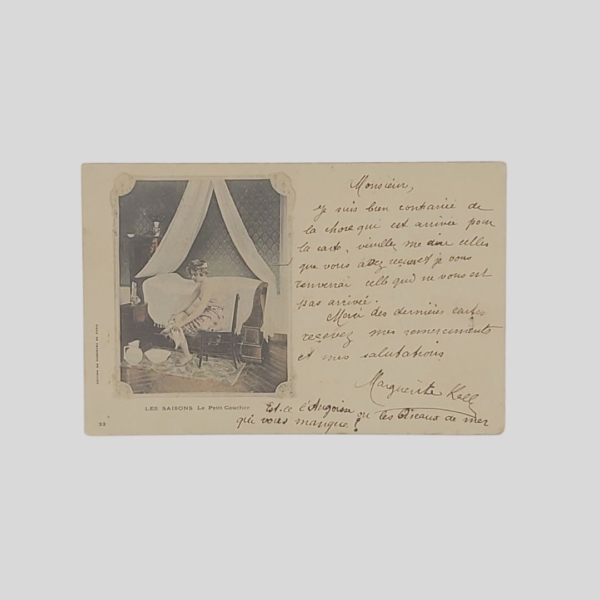 Monsieur,
Je suis bien contrariée de
la chose qui est arrivée pour
la carte, veuillez me dire celles
que vous avez reçues et je vous
renverrai celle qui ne vous est
pas arrivée.
Merci des dernières cartes
recevez mes remerciements
et mes salutations
Marguerite
LES SAISONS Le Petit Coucher
Est-ce l'Angoisse ou les Oiseaux de mer
qui vous manque ?
23